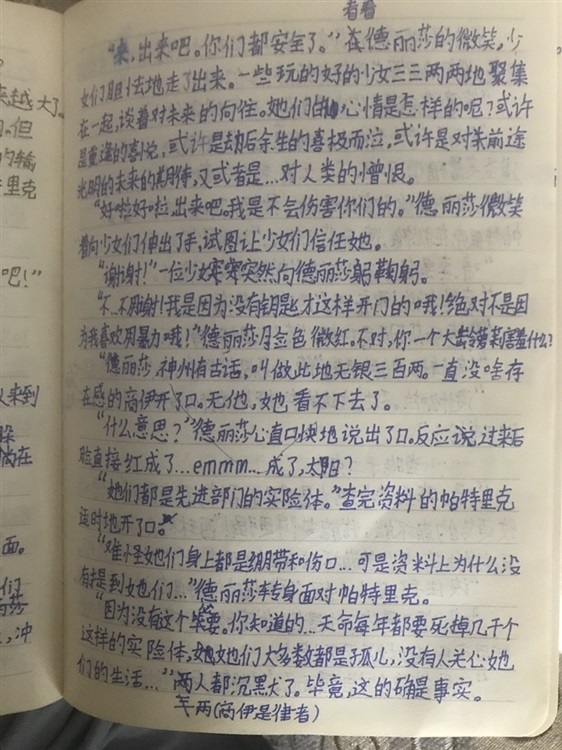 看看
“来，出来吧。你们都安全了。”在德丽莎的微笑，少
女们胆怯地走了出来。一些玩的好的少女三三两两地聚集
在一起，谈着对未来的向往。她们的心情是怎样的呢？或许
是重逢的喜悦，或许是劫后余生的喜极而泣，或许是对未前途
光明的未来的期待，又或者是…对人类的憎恨。
“好啦好啦，出来吧。我是不会伤害你们的。”德丽莎微笑
着向少女们伸出了手，试图让少女们信任她。
“谢谢！”一位少女突然向德丽莎躬鞠躬。
“不…不用谢！我是因为没有钥匙才这样开门的哦！绝对不是因
为我喜欢用暴力哦！”德丽莎脸色微红。不对，你一个大龄萝莉害羞什么？
“德丽莎，神州有古话，叫做此地无银三百两。一直没啥存
在感的高伊开了口。无他，她看不下去了。
“什么意思？”德丽莎心直口快地说出了口。反应说过来后
脸直接红成了…emmm…成了，太阳？
“她们都是先进部门的实险体。”查完资料的帕特里克
适时地开了口。
“难怪她们身上都是绷带和伤口…可是资料上为什么没
有提到她们…”德丽莎转身面对帕特里克。
“因为没有这个必要。你知道的…天命每年都要死掉几千个
这样的实险体，她们大多数都是孤儿，没有人关心她
们的生活…”两人都沉默了。毕竟，这的确是事实。
两(高伊是律者)
来越大了。
但
的输
里克
吧！”
来到
在
面。
们
，冲